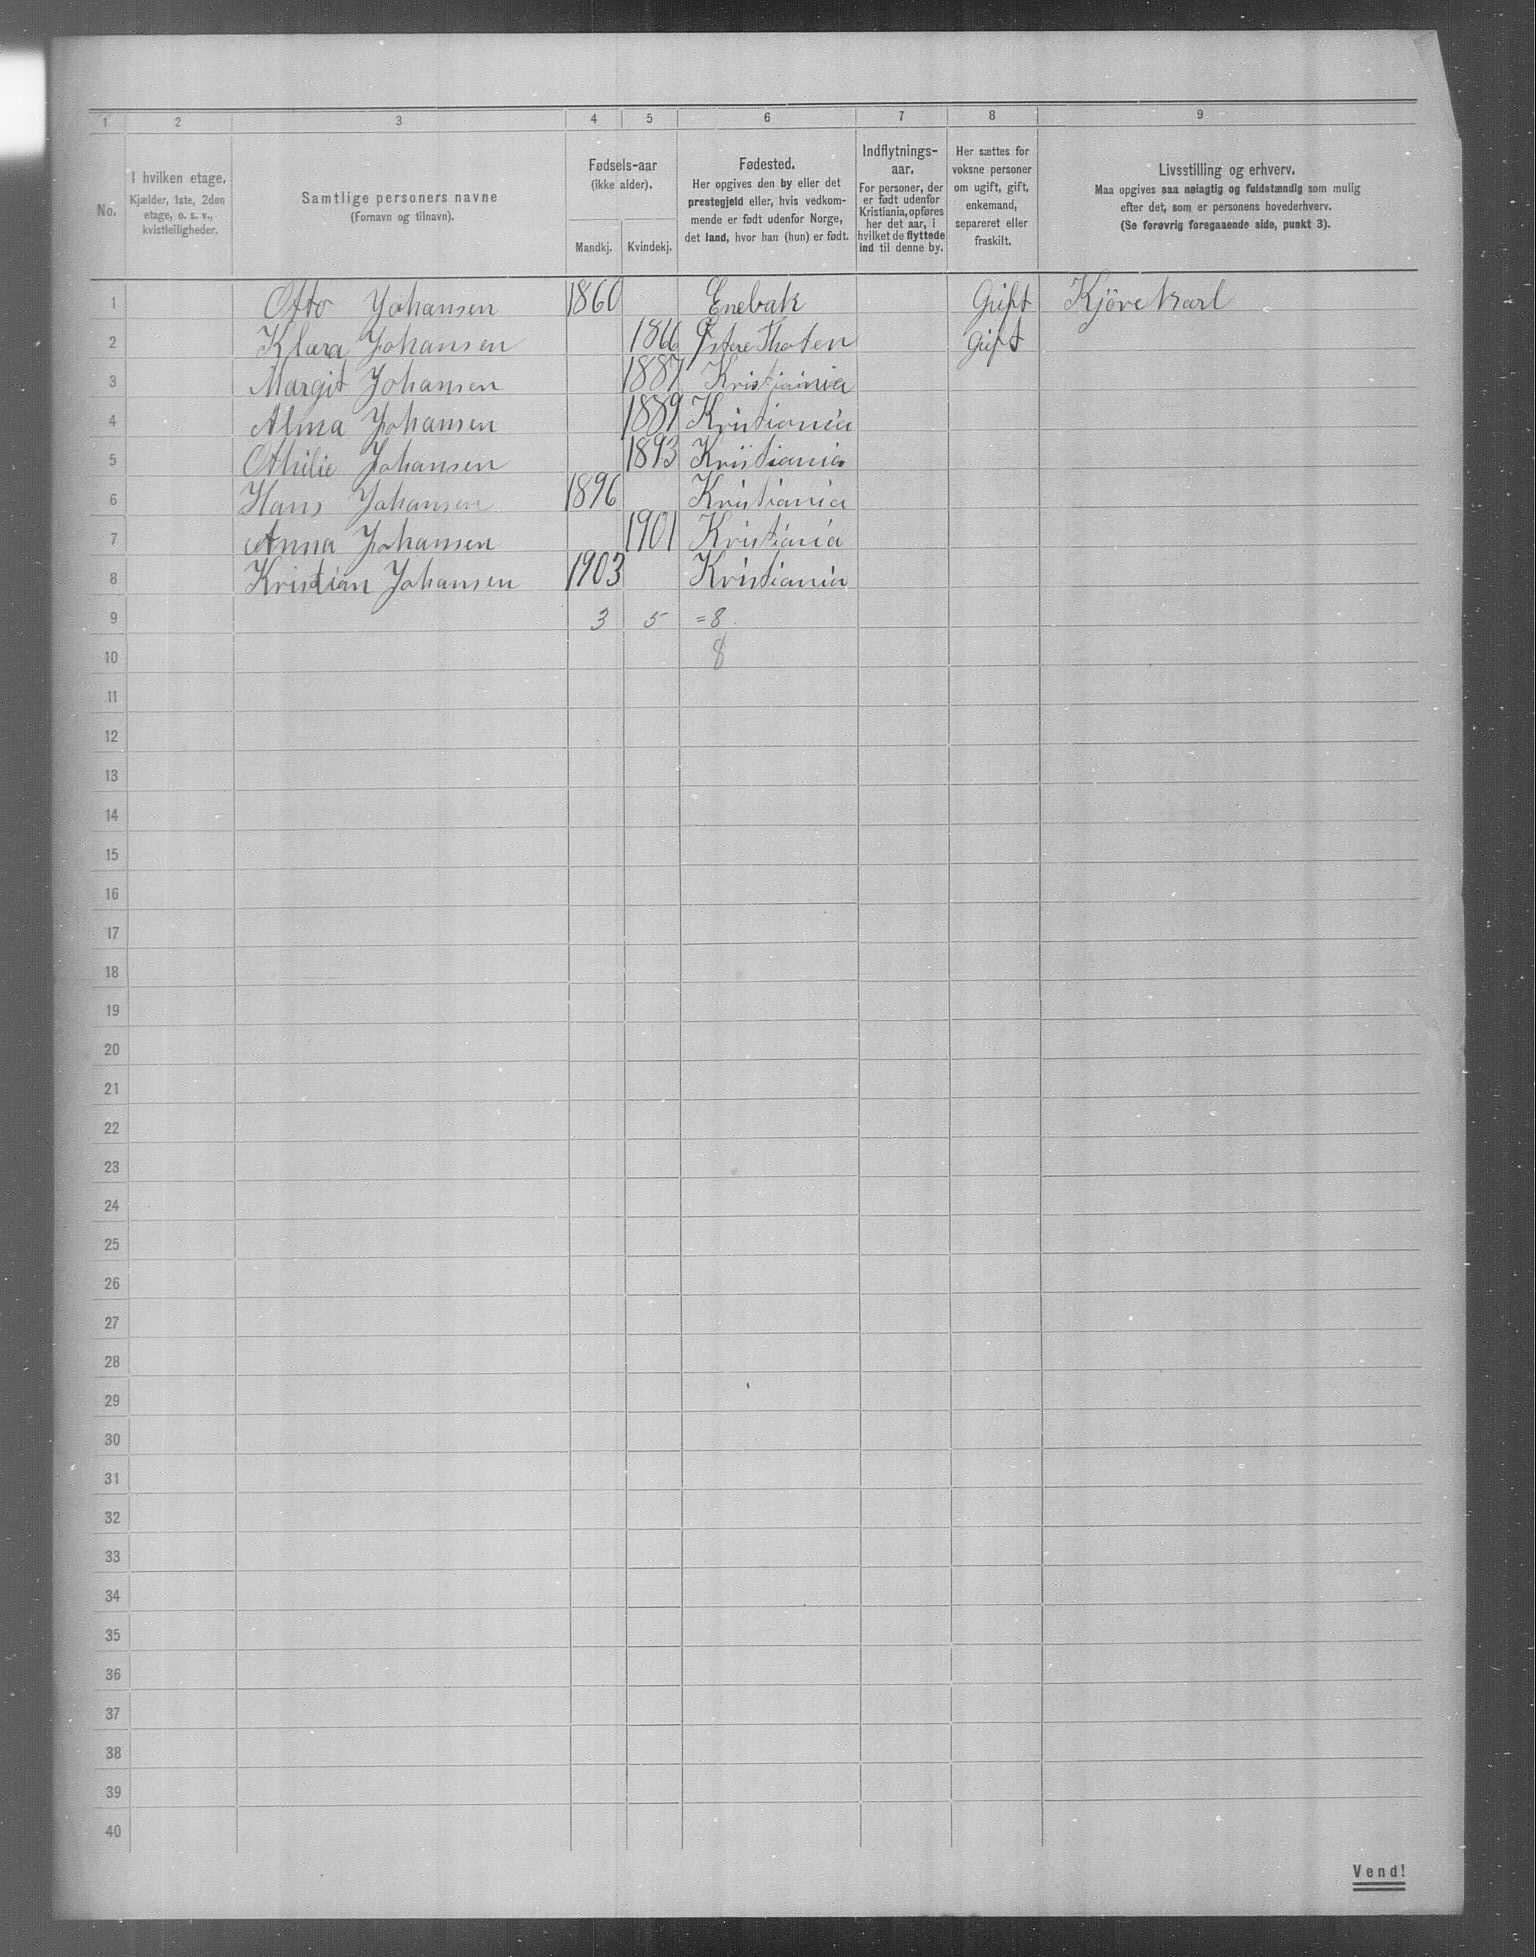 1 2 3 4 5 6 7 8 9
No.
I hvilken etage.
Kjælder, 1ste, 2den
etage, o. s. v.,
kvistleiligheder.
Samtlige personers navne
(Fornavn og tilnavn).
Fødsels-aar
(ikke alder).
Mandkj. Kvindekj.
Fødested.
Her opgives den by eller det
prestegjeld eller, hvis vedkom-
mende er født udenfor Norge,
det land, hvor han (hun) er født.
Indflytnings-
aar.
For personer, der
er født udenfor
Kristiania, opføres
her det aar, i
hvilket de flyttede
ind til denne by.
Her sættes for
voksne personer
om ugift, gift,
enkemand,
separeret eller
fraskilt.
Livsstilling og erhverv.
Maa opgives saa nøiagtig og fuldstændig som mulig
efter det, som er personens hovederhverv.
(Se forøvrig foregaaende side, punkt 3).
1 Otto Johansen 1860 Enebak Gift Kjörekarl
2 Klara Johansen 1866 Østere Thoten Gift
3 Margit Johansen 1887 Kristiainia
4 Alma Johansen 1889 Kristiania
5 Othilie Johansen 1893 Kristiania
6 Hans Johansen 1896 Kristiania
7 Anna Johansen 1901 Kristiania
8 Kristian Johansen 1903 Kristiania
9 3 5 = 8
10 8
11
12
13
14
15
16
17
18
19
20
21
22
23
24
25
26
27
28
29
30
31
32
33
34
35
36
37
38
39
40
Vend!